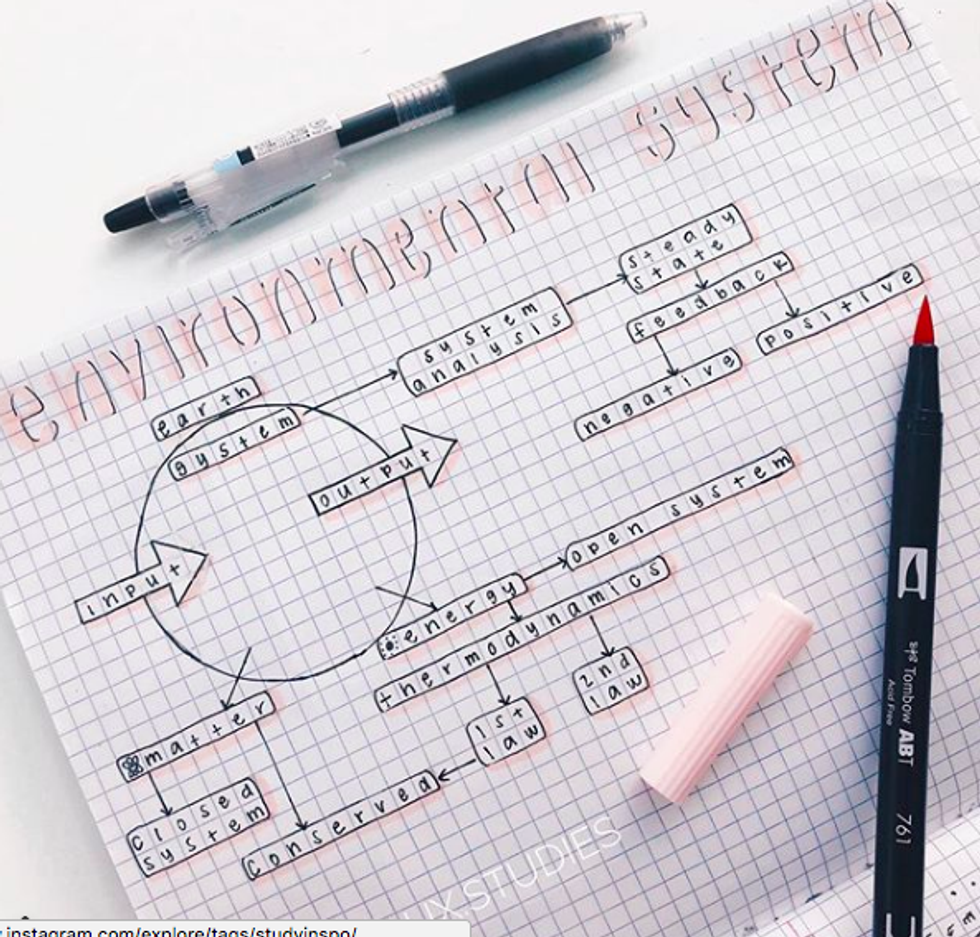 environmental system
earth
system
system
analysis
steady
state
feedback
positive
negative
output
input
energy
open system
thermodynamics
2nd
law
1st
law
matter
closed
system
conserved
UX.STUDIES
Tombow ABT
Acid Free
761
instagram.com/explore/tags/studyinspo/